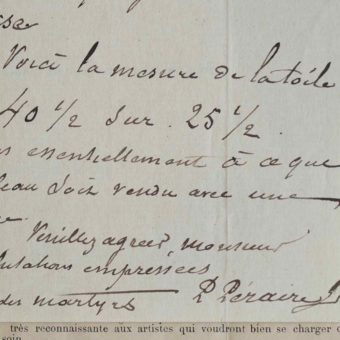 Voici la mesure de la toile
40 1/2 sur 25 1/2.
essentiellement à ce que
eau soit vendu avec une
Veuillez agréer, monsieur
lutations empressées
des martyrs P Péraire
très reconnaissante aux artistes qui voudront bien se charger
soin